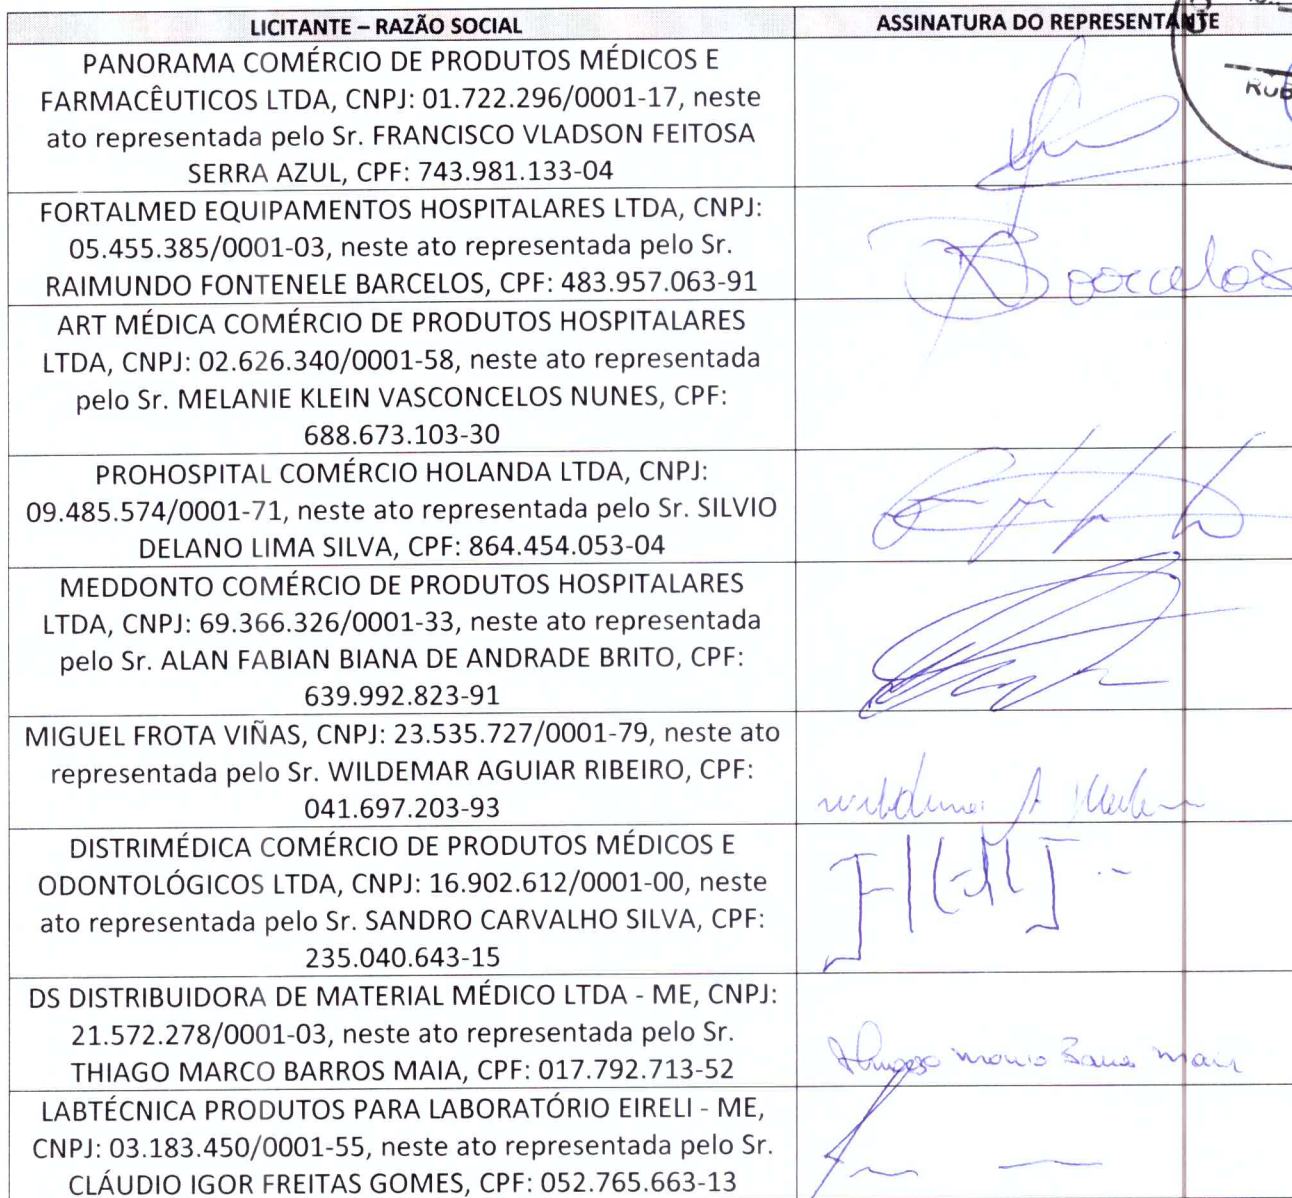 LICITANTE – RAZÃO SOCIAL
ASSINATURA DO REPRESENTANTE
PANORAMA COMÉRCIO DE PRODUTOS MÉDICOS E
FARMACÊUTICOS LTDA, CNPJ: 01.722.296/0001-17, neste
ato representada pelo Sr. FRANCISCO VLADSON FEITOSA
SERRA AZUL, CPF: 743.981.133-04
FORTALMED EQUIPAMENTOS HOSPITALARES LTDA, CNPJ:
05.455.385/0001-03, neste ato representada pelo Sr.
RAIMUNDO FONTENELE BARCELOS, CPF: 483.957.063-91
Barcelos
ART MÉDICA COMÉRCIO DE PRODUTOS HOSPITALARES
LTDA, CNPJ: 02.626.340/0001-58, neste ato representada
pelo Sr. MELANIE KLEIN VASCONCELOS NUNES, CPF:
688.673.103-30
PROHOSPITAL COMÉRCIO HOLANDA LTDA, CNPJ:
09.485.574/0001-71, neste ato representada pelo Sr. SILVIO
DELANO LIMA SILVA, CPF: 864.454.053-04
MEDDONTO COMÉRCIO DE PRODUTOS HOSPITALARES
LTDA, CNPJ: 69.366.326/0001-33, neste ato representada
pelo Sr. ALAN FABIAN BIANA DE ANDRADE BRITO, CPF:
639.992.823-91
MIGUEL FROTA VIÑAS, CNPJ: 23.535.727/0001-79, neste ato
representada pelo Sr. WILDEMAR AGUIAR RIBEIRO, CPF:
041.697.203-93
DISTRIMÉDICA COMÉRCIO DE PRODUTOS MÉDICOS E
ODONTOLÓGICOS LTDA, CNPJ: 16.902.612/0001-00, neste
ato representada pelo Sr. SANDRO CARVALHO SILVA, CPF:
235.040.643-15
DS DISTRIBUIDORA DE MATERIAL MÉDICO LTDA - ME, CNPJ:
21.572.278/0001-03, neste ato representada pelo Sr.
THIAGO MARCO BARROS MAIA, CPF: 017.792.713-52
LABTÉCNICA PRODUTOS PARA LABORATÓRIO EIRELI - ME,
CNPJ: 03.183.450/0001-55, neste ato representada pelo Sr.
CLÁUDIO IGOR FREITAS GOMES, CPF: 052.765.663-13